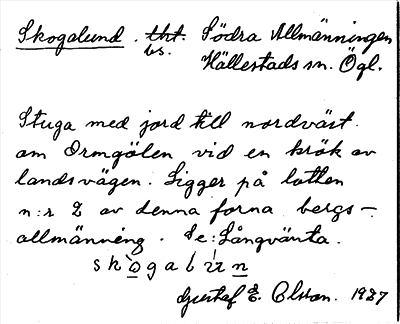 Skogalund. tht. Södra Allmänningen
bs.
Hällestads sn. Ögl.
Stuga med jord till nordväst
om Ormgölen vid en krök av
landsvägen. Ligger på lotten
n:r 2 av denna forna bergs-
allmänning. Se: Långvänta.
skogaluṅn
Gustaf E. Olsson. 1927